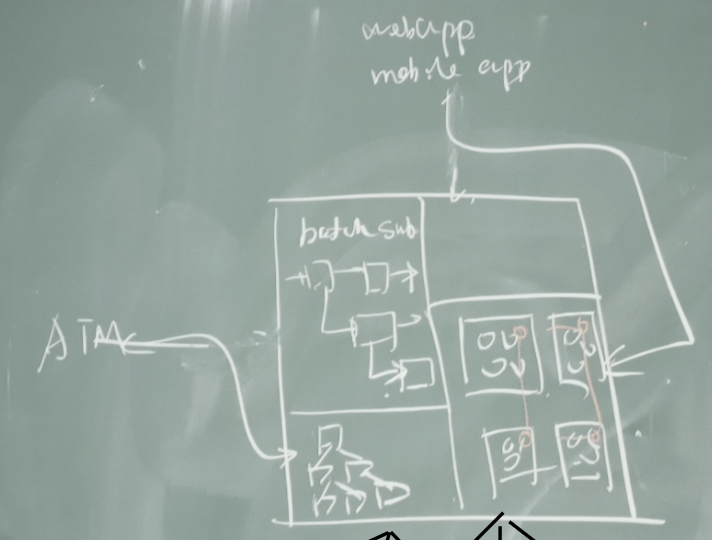 webapp
mobile app
batch sub
ATM